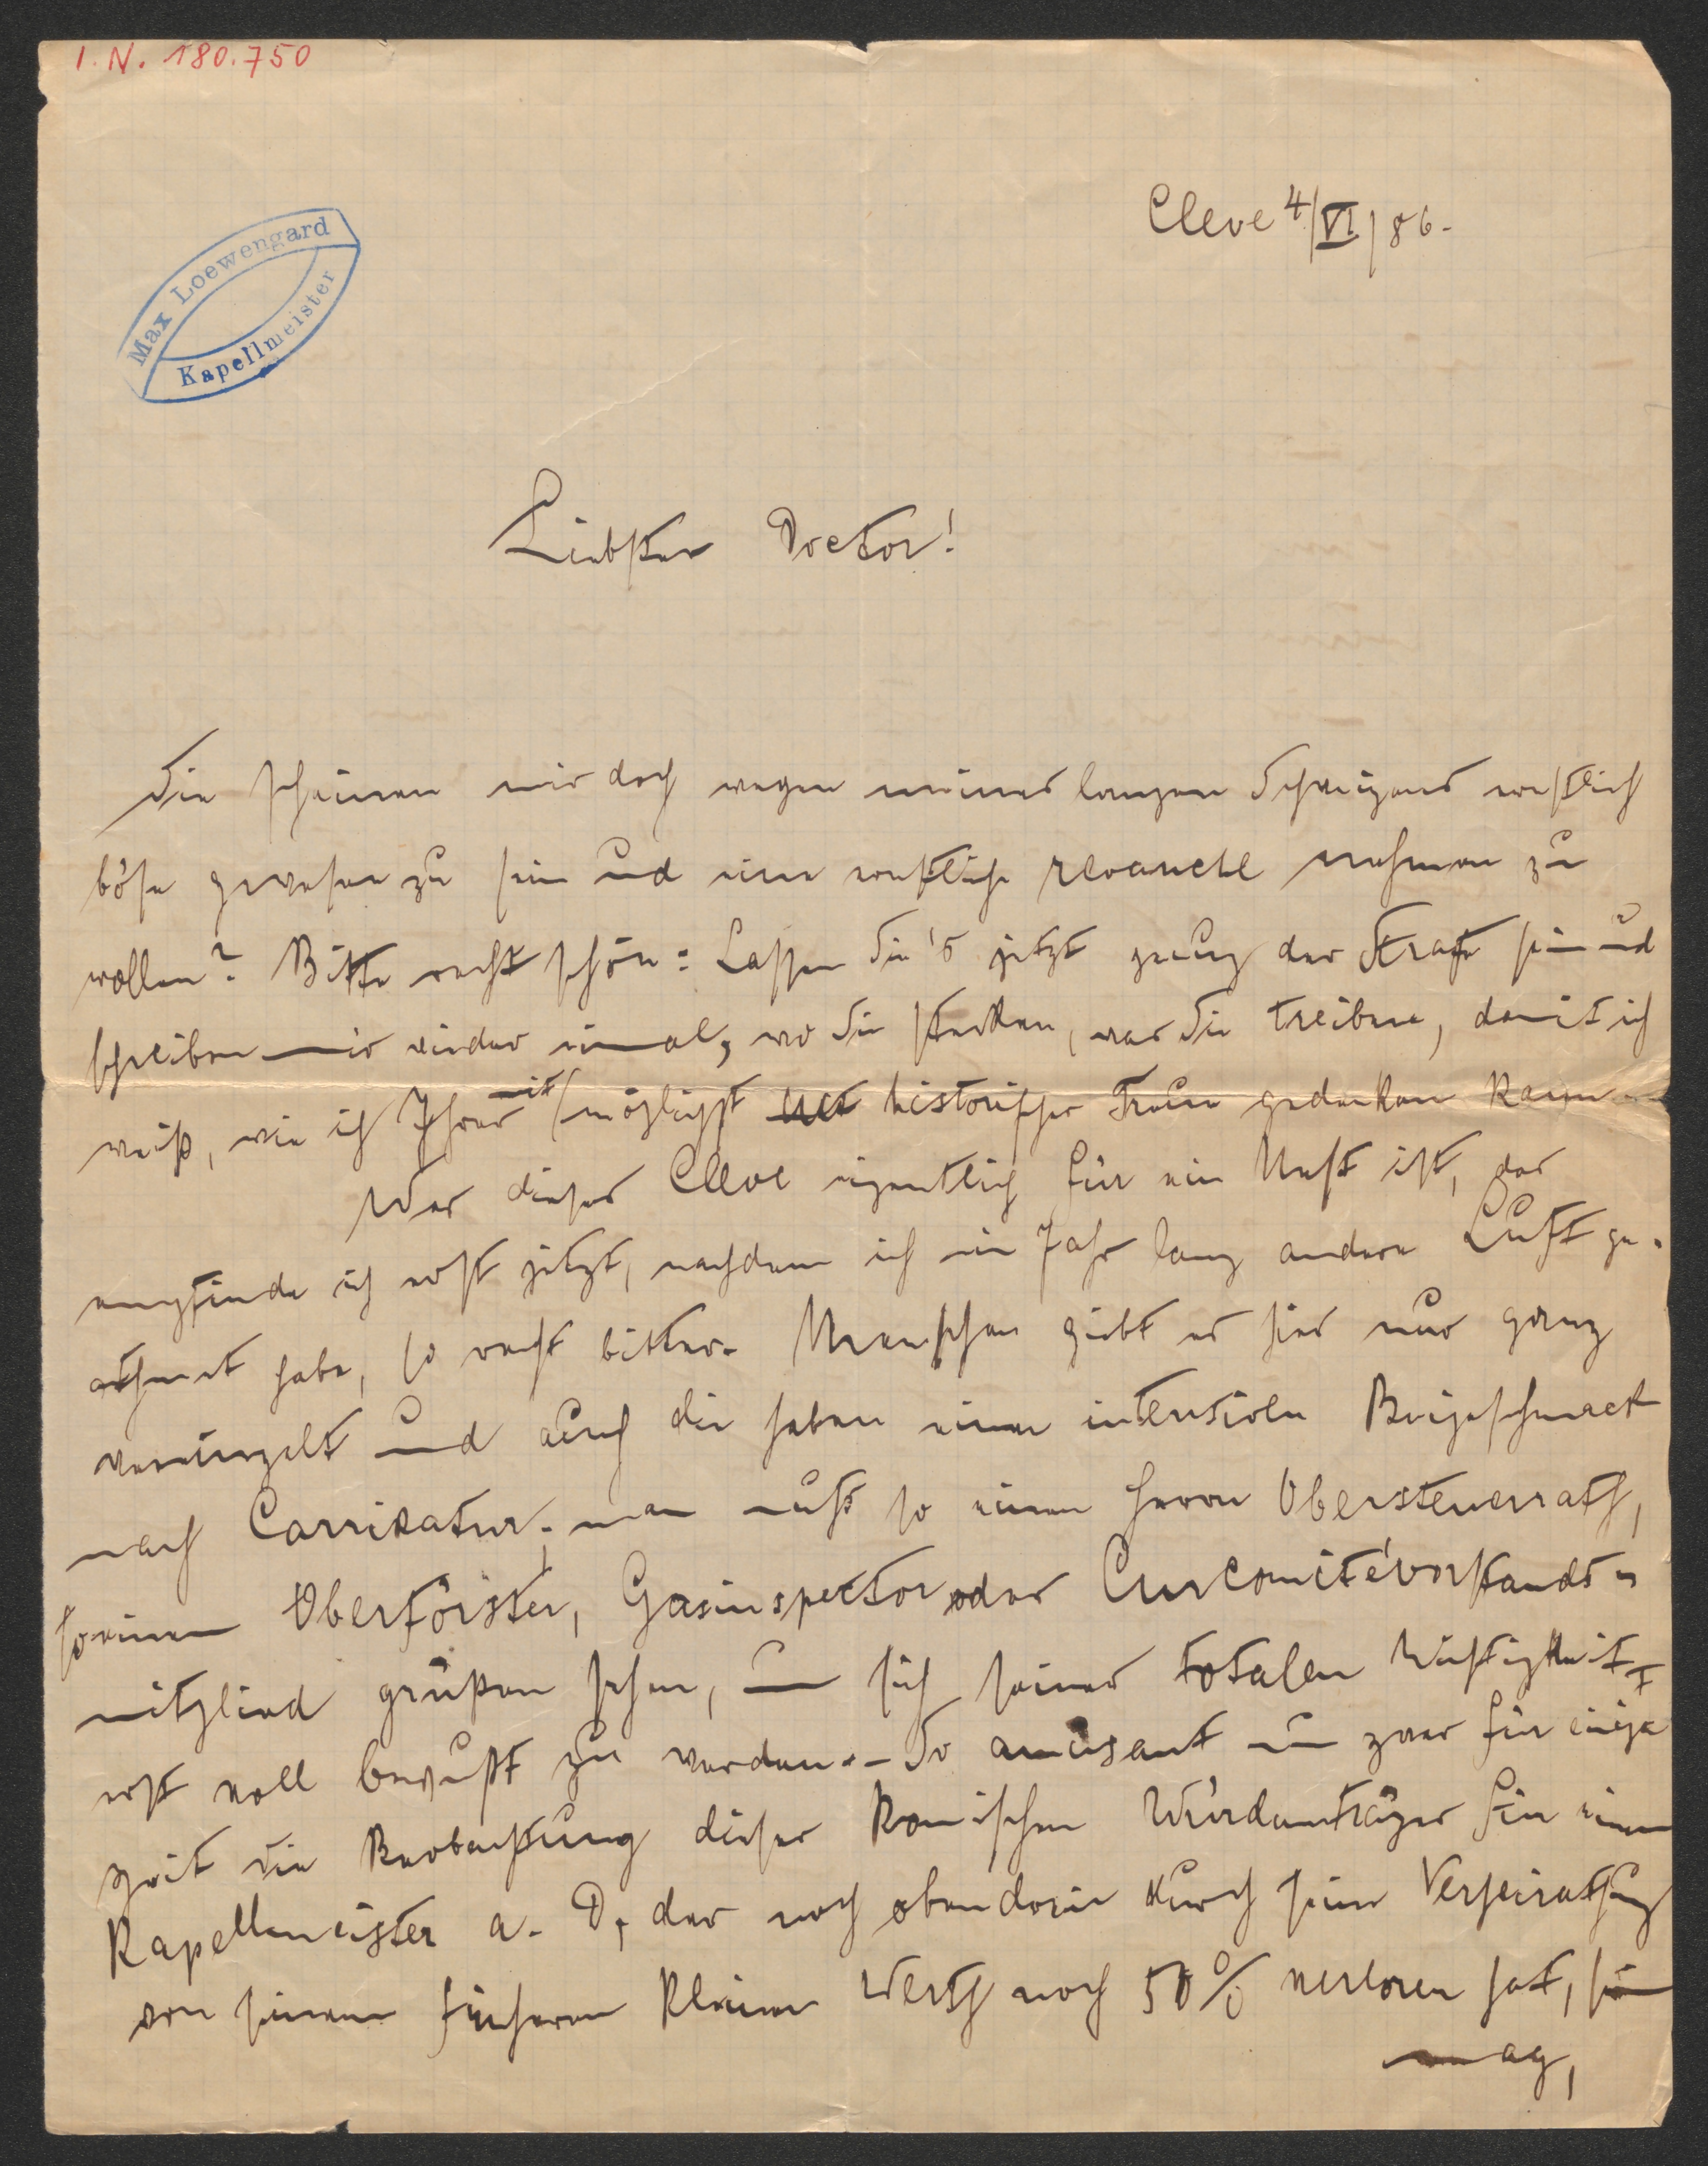 I. N. 180.750
Max Loewengard
Kapellmeister
Cleve 4/VI/86.
Liebster Doctor!
Sie scheinen mir doch wegen meines langen Schweigens restlich
böse gewesen zu sein und eine restliche revanche nehmen zu
wollen? Bitte recht schön: Lassen Sie's jetzt genug der Strafe sein und
schreiben mir wieder einmal, wo Sie stecken, was Sie treiben, damit ich
weiß, wie ich Ihrer mit möglichst historischer Treue gedenken kann
Was dieses Cleve eigentlich für ein Nest ist, das
empfinde ich erst jetzt, nachdem ich ein Jahr lang andere Luft ge-
athmet habe, so recht bitter. Menschen giebt es hier nur ganz
vereinzelt und auch die haben einen intensiven Beigeschmack
nach Carrikatur; man muß so einen Herrn Obersteuerrath,
so einen Oberförster, Gasinspector oder Curcomitévorstands-
mitglied grüßen sehen, um sich seiner totalen Nichtigkeit
erst voll bewußt zu werden. - So amüsant nun zwar für einige
Zeit die Beobachtung dieser komischen Würdenträger für einen
Kapellmeister a. D, der noch obendrein durch seine Verheirathung
von seinem früheren kleinen Werth noch 50% verloren hat, sein
mag,